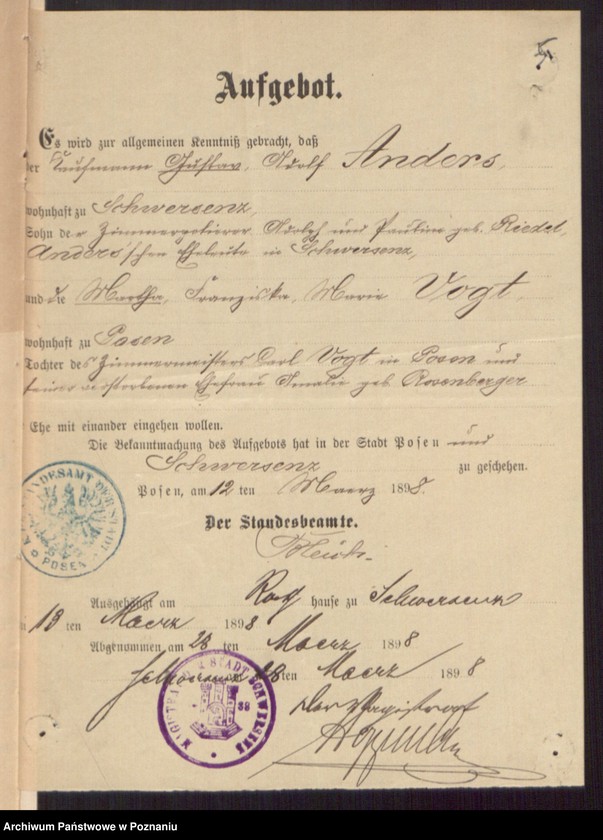 Aufgebot.
Es wird zur allgemeinen Kenntniß gebracht, daß
der Kaufmann Gustav, Adolf Anders,
wohnhaft zu Schwersenz,
Sohn der Zimmerpolierer Adolph und Pauline geb. Riedel,
Anders'schen Eheleute in Schwersenz,
und die Martha, Franziska, Marie Vogt,
wohnhaft zu Posen
Tochter des Zimmermeisters Carl Vogt in Posen und
seiner verstorbenen Ehefrau Amalie geb. Rosenberger
Ehe mit einander eingehen wollen.
Die Bekanntmachung des Aufgebots hat in der Stadt Posen und
Schwersenz zu geschehen.
Posen, am 12 ten Maerz 1898.
Der Standesbeamte.
STANDESAMT DER STADT
POSEN
Ausgehängt am Rathhause zu Schwersenz
13 ten Maerz 1898
Abgenommen am 28 ten Maerz 1898
Schwersenz 28 ten Maerz 1898
MAGISTRAT DER STADT SCHWERSENZ
Der Magistrat
Archiwum Państwowe w Poznaniu